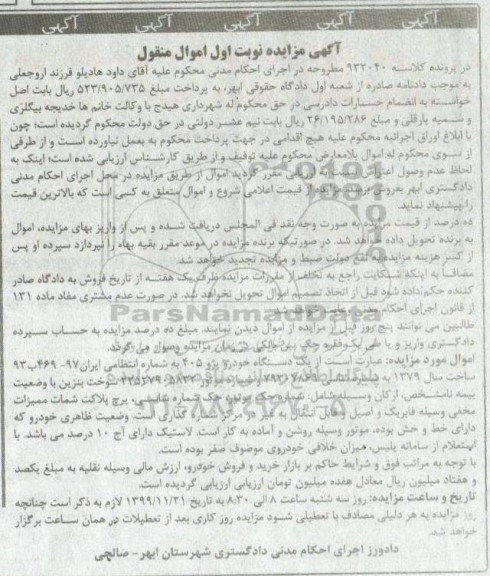 آگهی آگهی آگهی آگهی آگهی
آگهی مزایده نوبت اول اموال منقول
در پرونده کلاسه ۹۳۲۰۴۰ مطروحه در اجرای احکام مدنی محکوم علیه آقای داود هادیلو فرزند اروجعلی
به موجب دادنامه صادره از شعبه اول دادگاه حقوقی ابهر، به پرداخت مبلغ ۵۲۳/۹۰۵/۷۳۵ ریال بابت اصل
خواسته به انضمام خسارات دادرسی در حق محکوم له شهرداری هیدج با وکالت خانم ها خدیجه بیگلری
و سمیه یارقلی و مبلغ ۲۶/۱۹۵/۲۸۶ ریال بابت نیم عشر دولتی در حق دولت محکوم گردیده است؛ چون
با ابلاغ اوراق اجرائیه محکوم علیه هیچ اقدامی در جهت پرداخت محکوم به بعمل نیاورده است و از طرفی
از سوی محکوم له اموال بلامعارض محکوم علیه توقیف و از طریق کارشناس ارزیابی شده است؛ اینک به
لحاظ عدم وصول اعتراض نسبت به ارزیابی مقرر گردید اموال از طریق مزایده در محل اجرای احکام مدنی
دادگستری ابهر بفروش برسد. مزایده از قیمت اعلامی شروع و اموال متعلق به کسی است که بالاترین قیمت
را پیشنهاد نماید.
ده درصد از قیمت مزایده به صورت وجه نقد فی المجلس دریافت شده و پس از واریز بهای مزایده، اموال
به برنده تحویل داده خواهد شد. در صورتیکه برنده مزایده در موعد مقرر بقیه بهاء را نپردازد سپرده او پس
از کسر هزینه مزایده به نفع دولت ضبط و مزایده تجدید خواهد شد.
مضافا به اینکه شکایت راجع به تخلف از مقررات مزایده ظرف یک هفته از تاریخ فروش به دادگاه صادر
کننده حکم داده شود قبل از اتخاذ تصمیم اموال تحویل نخواهد شد. در صورت عدم مشتری مفاد ماده ۱۳۱
از قانون اجرای احکام مدنی رعایت خواهد شد.
طالبین می توانند پنج روز قبل از مزایده از اموال دیدن نمایند. مبلغ ده درصد مزایده به حساب سپرده
دادگستری واریز و یا طی یک فقره چک بین بانکی در زمان مزایده وصول می گردد.
اموال مورد مزایده: عبارت است از یک دستگاه خودرو پژو ۴۰۵ به شماره انتظامی ایران ۹۷- ۴۶۹ب۹۳
ساخت سال ۱۳۷۹ به شماره شاسی و شماره موتور سوخت بنزین با وضعیت
بیمه نامشخص، ارکان وسیله شامل: شماره حک موتور، حک شماره شاسی، برچ پلاکت شمات ممیزات
مخفی وسیله فابریک و اصیل و قابل انتقال به غیر در مرکز شماره گذاری است. وضعیت ظاهری خودرو که
دارای خط و خش بوده، موتور وسیله روشن و آماده به کار است. لاستیک دارای آج ۱۰ درصد می باشد. با
استعلام از سامانه پلیس، میزان خلافی خودروی موصوف صفر بوده است.
با توجه به مراتب فوق و شرایط حاکم بر بازار خرید و فروش خودرو، ارزش مالی وسیله نقلیه به مبلغ یکصد
و هفتاد میلیون ریال معادل هفده میلیون تومان ارزیابی ارزیابی گردیده است.
تاریخ و ساعت مزایده: روز سه شنبه ساعت ۸ الی ۸:۳۰ به تاریخ ۱۳۹۹/۱۱/۲۱ لازم به ذکر است چنانچه
روز مزایده به هر دلیلی مصادف با تعطیلی شود مزایده روز کاری بعد از تعطیلات در همان ساعت برگزار
خواهد شد.
دادورز اجرای احکام مدنی دادگستری شهرستان ابهر- صالحی
ParsNamadData